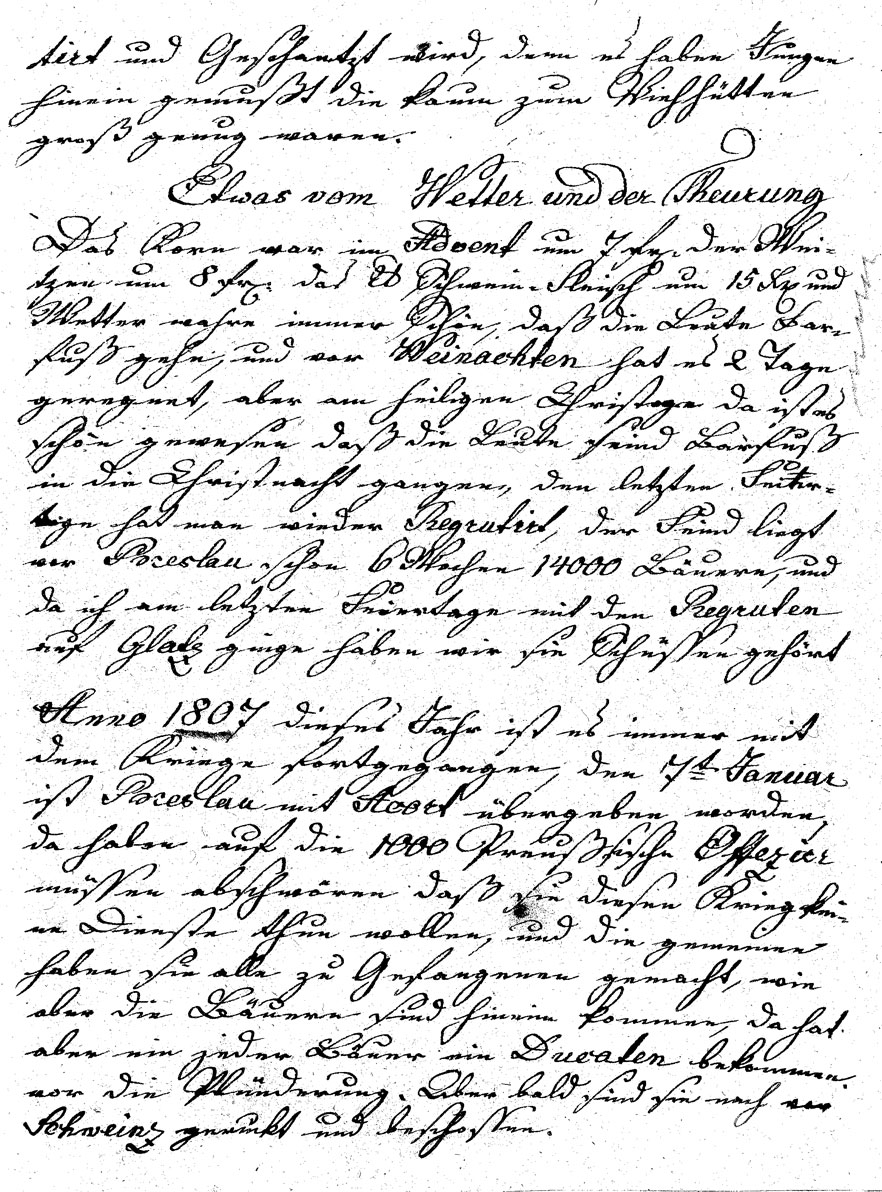 tirt und Geschantzt wird, denn es haben Jungen
hinein gemußt die kaum zum Viehhütten
groß genug waren.
Etwas vom Wetter und der Theurung
Das Korn war im Advent um 7 fr: der Wei-
tzen um 8 fr: das ℔ Schwein-Fleisch um 15 Kr und
Wetter wahre immer Schön, daß die Leute Bar-
fuß gehn, und vor Weinachten hat es 2 Tage
geregnet, aber am heiligen Christage da ist es
schön gewesen daß die Leute seind Barfuß
in die Christnacht gangen, den letzten Feiter-
tige hat man wieder Regrutirt, der Feind liegt
vor Breslau schon 6 Wochen 14000 Bäuern, und
da ich am letzten Feiertage mit den Regruten
auf Glatz ginge haben wir sie Schüssen gehört
Anno 1807 dieses Jahr ist es immer mit
dem Kriege fortgegangen, den 7t Januar
ist Breslau mit Acort übergeben worden,
da haben auf die 1000 Preußsische Offezier
müssen abschwören daß sie diesen Krieg kei-
ne Dienste thun wollen, und die gemeinen
haben sie alle zu Gefangenen gemacht, wie
aber die Bäuern sind hinein kommen, da hat
aber ein jeder Bäuer ein Ducaten bekommen
vor die Plünderung. Aber bald sind sie nach vor
Schweinz gerukt und beschossen.